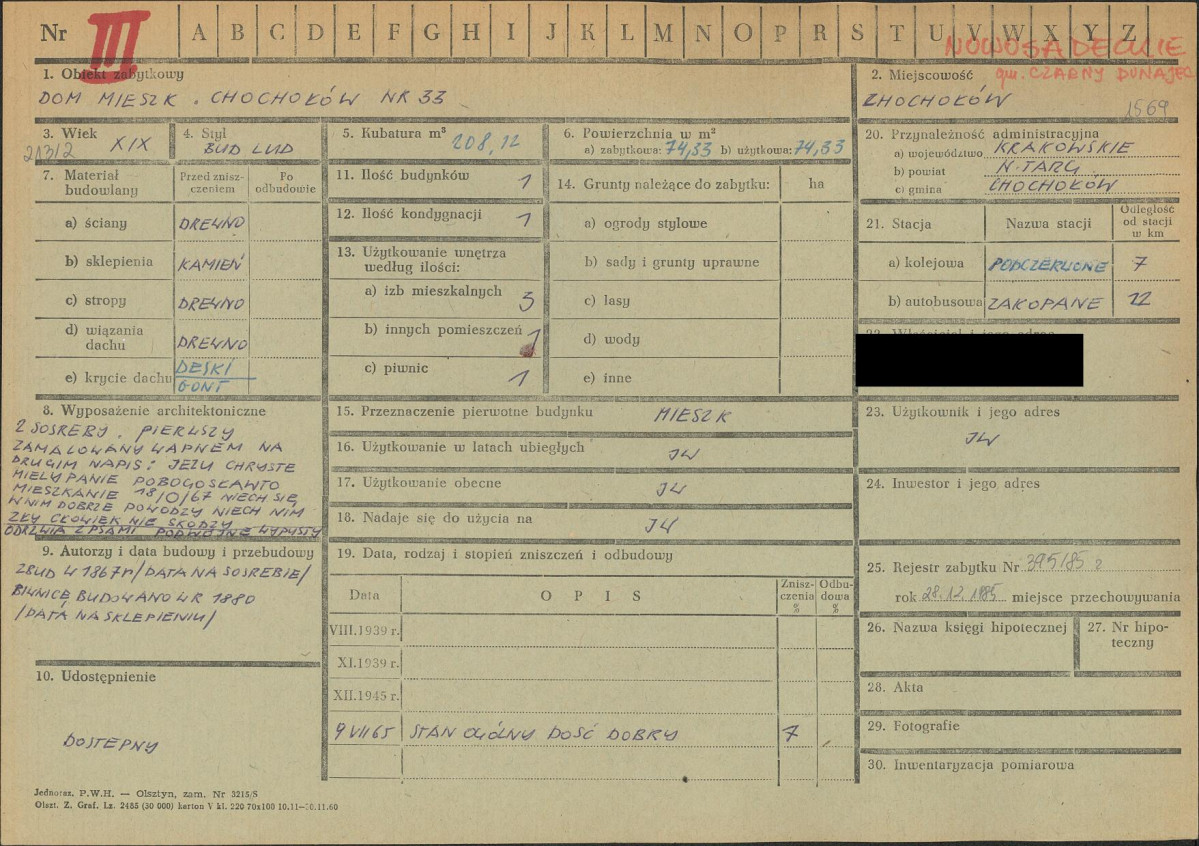 Nr III A B C D E F G H I J K L M N O P R S T U V W X Y Z
NOWOSĄDECKIE
gm. CZARNY DUNAJEC
1. Obiekt zabytkowy
DOM MIESZK. CHOCHOŁÓW NR 33
2. Miejscowość
CHOCHOŁÓW
1569
3. Wiek
XIX
21312
4. Styl
BUD LUD
5. Kubatura m³
208,12
6. Powierzchnia w m²
a) zabytkowa: 74,33 b) użytkowa: 74,33
20. Przynależność administracyjna
a) województwo KRAKOWSKIE
b) powiat N-TARG
c) gmina CHOCHOŁÓW
7. Materiał budowlany
Przed znisz-
czeniem
Po
odbudowie
a) ściany DREWNO
b) sklepienia KAMIEŃ
c) stropy DREWNO
d) wiązania
dachu DREWNO
e) krycie dachu DESKI
GONT
11. Ilość budynków 1
12. Ilość kondygnacji 1
13. Użytkowanie wnętrza
według ilości:
a) izb mieszkalnych 3
b) innych pomieszczeń 1
c) piwnic 1
14. Grunty należące do zabytku: ha
a) ogrody stylowe
b) sady i grunty uprawne
c) lasy
d) wody
e) inne
21. Stacja Nazwa stacji
Odległość
od stacji
w km
a) kolejowa PODCZERWONE 7
b) autobusowa ZAKOPANE 12
8. Wyposażenie architektoniczne
2 SOSREBY. PIERWSZY
ZAMALOWANY WAPNEM NA
DRUGIM NAPIS: JEZU CHRYSTE
MIELY PANIE POBOGOSŁAWTO
MIESZKANIE 18/0/67 NIECH SIĘ
WNIM DOBRZE POWODZY NIECH NIM
ZŁY CŁOWIEK NIE SKODZY
ODRZWIA Z PSAMI PODWÓJNE WYPUSTY
15. Przeznaczenie pierwotne budynku MIESZK
16. Użytkowanie w latach ubiegłych JW
17. Użytkowanie obecne JW
18. Nadaje się do użycia na JW
23. Użytkownik i jego adres
JW
24. Inwestor i jego adres
9. Autorzy i data budowy i przebudowy
ZBUD W 1867r/DATA NA SOSREBIE/
PIWNICĘ BUDOWANO W R 1880
/DATA NA SKLEPIENIU/
19. Data, rodzaj i stopień zniszczeń i odbudowy
Data OPIS
Znisz-
czenia
%
Odbu-
dowa
%
VIII.1939 r.
XI.1939 r.
XII.1945 r.
9 VII 65 STAN OGÓLNY DOŚĆ DOBRY 7
25. Rejestr zabytku Nr 395/85
rok 28.12.1985 miejsce przechowywania
26. Nazwa księgi hipotecznej
27. Nr hipo-
teczny
28. Akta
29. Fotografie
30. Inwentaryzacja pomiarowa
10. Udostępnienie
DOSTEPNY
Jednoraz. P.W.H. — Olsztyn, zam. Nr 3215/S
Olszt. Z. Graf. Lz. 2485 (30 000) karton V kl. 220 70x100 10.11—30.11.60